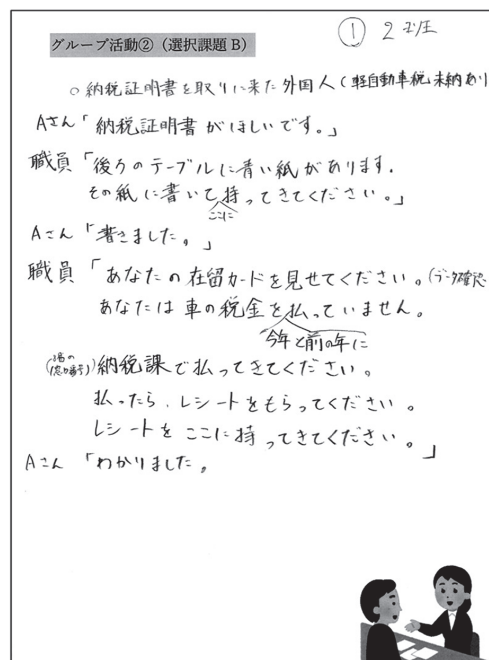 グループ活動②(選択課題 B)
① 2班
○納税証明書を取りに来た外国人(軽自動車税 未納あり
Aさん「納税証明書がほしいです。」
職員「後ろのテーブルに青い紙があります.
その紙に書いて持ってきてください。」
ここに
Aさん「書きました。」
職員「あなたの在留カードを見せてください。(データ確認
あなたは車の税金を払っていません。
今年と前の年に
納税課で払ってきてください。
払ったら、レシートをもらってください。
レシートをここに持ってきてください。」
Aさん「わかりました。